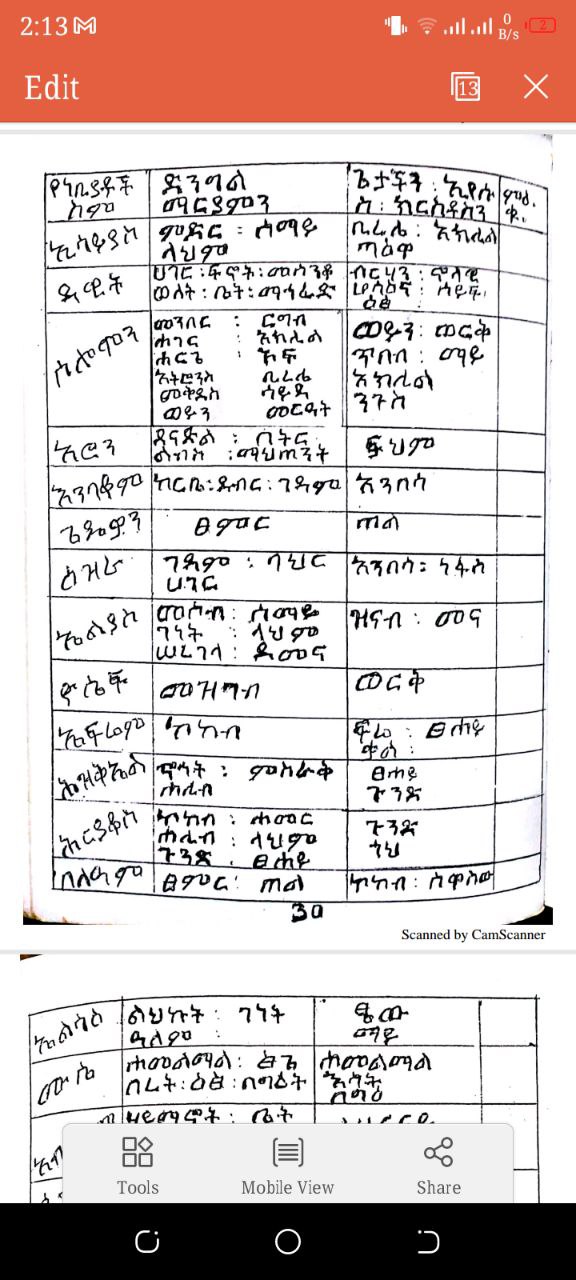 2:13
0
B/s
2
Edit
13
የነቢያዶች ስም
ድንግል ማርያምን
ጌታችን : ኢየሱስ : ክርስቶስን
ምዕ. ቁ.
ኢሳይያስ
ምድር : ሰማይ
ላህም
ቤረሌ : አክሊል
ጣዕዋ
ዳዊት
ሀገር : ፍኖት : መሰንቆ
ወለት : ቤት : ማኅፈድ
ብርሃን : ኖላዊ
ሰይፍ
ዕፅ
ሰሎሞን
መንበር : ርግብ
ሐገር : አክሊል
ሐርጌ : ኦፍ
አትሮንስ ቤረሌ
መቅደስ ሰይዳ
ወይን መርዓት
ወይን : ወርቅ
ጥበብ : ማይ
አክሊል
ንጉስ
አሮን
ዳናድል : በትር
ልብስ : ማህጠንት
ፍህም
እንባቆም
ከርቤ : ደብር : ገዳም
አንበሳ
ጌዴዎን
ፀምር
ጠል
ዕዝራ
ገዳም : ባህር
ሀገር
አንበሳ : ነፋስ
ኤልያስ
መሶብ : ሰማይ
ገነት : ላህም
ሠረገላ : ደመና
ዝናብ : መና
ዮሴፍ
መዝገብ
ወርቅ
ኤፍሬም
ኮከብ
ፍሬ : ፀሐይ
ቃል :
ሕዝቅኤል
ኖኅት : ምስራቅ
ሐሊብ
ፀሐይ
ጉንድ
ሕርያቆስ
ኮከብ : ሐመር
ሐሊብ : ላህም
ጉንድ : ፀሐይ
ጉንድ
ጎህ
በለዓም
ፀምር : ጠል
ኮከብ : ሰዋስው
30
Scanned by CamScanner
ኤልሳዕ
ልህኩት : ገነት
ዓለም :
ፄው
ማይ
ሙሴ
ሐመልማል : ፅጌ
በረት : ዕፅ : በግዕት
ሐመልማል
እሳት
በግዕ
ሃይማኖት : ቤት
Tools
Mobile View
Share